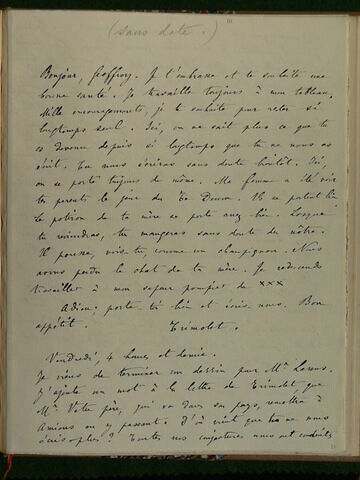 (sans date.)
Bonjour, Geoffroy. Je t'embrasse et te souhaite une
bonne santé. Je travaille toujours à mon tableau.
Mille encouragements, je te souhaite pour rester si
longtemps seul. Ici, on ne sait plus ce que tu
es devenu depuis si longtemps que tu ne nous as
écrit. Tu nous écriras sans doute bientôt. Ici,
on se porte toujours de même. Ma femme a été voir
tes parents le jour du Te Deum. Ils se portent bien.
Le potiron de ta mère se porte aussi bien. Lorsque
tu reviendras, tu mangeras sans doute du nôtre.
Il pousse, vois-tu, comme un champignon. Nous
avons perdu le chat de ta mère. Je redescends
travailler à mon sapeur pompier de xxx
Adieu; porte toi bien et écris nous. Bon
appétit.
Trimolet.
Vendredi, 4 heures et demie.
Je viens de terminer un dessin pour Mr
J'ajoute un mot à la lettre de Trimolet, que
Mr Votre père, qui va dans son pays, remettra à
Amiens en y passant. D'où vient que tu ne nous
écris plus? Toutes nos conjectures nous ont conduits